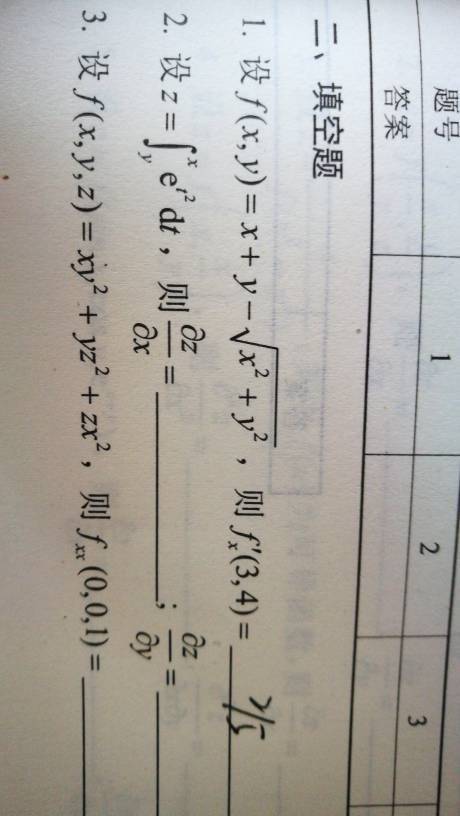 题号 1 2 3
答案
二、填空题
1. 设 f(x,y)=x+y−√(x²+y²)，则 f′ₓ(3,4)= 2/5
2. 设 z=∫_y^x e^{t²}dt，则 ∂z/∂x=______；∂z/∂y=______
3. 设 f(x,y,z)=xy²+yz²+zx²，则 fₓₓ(0,0,1)=______